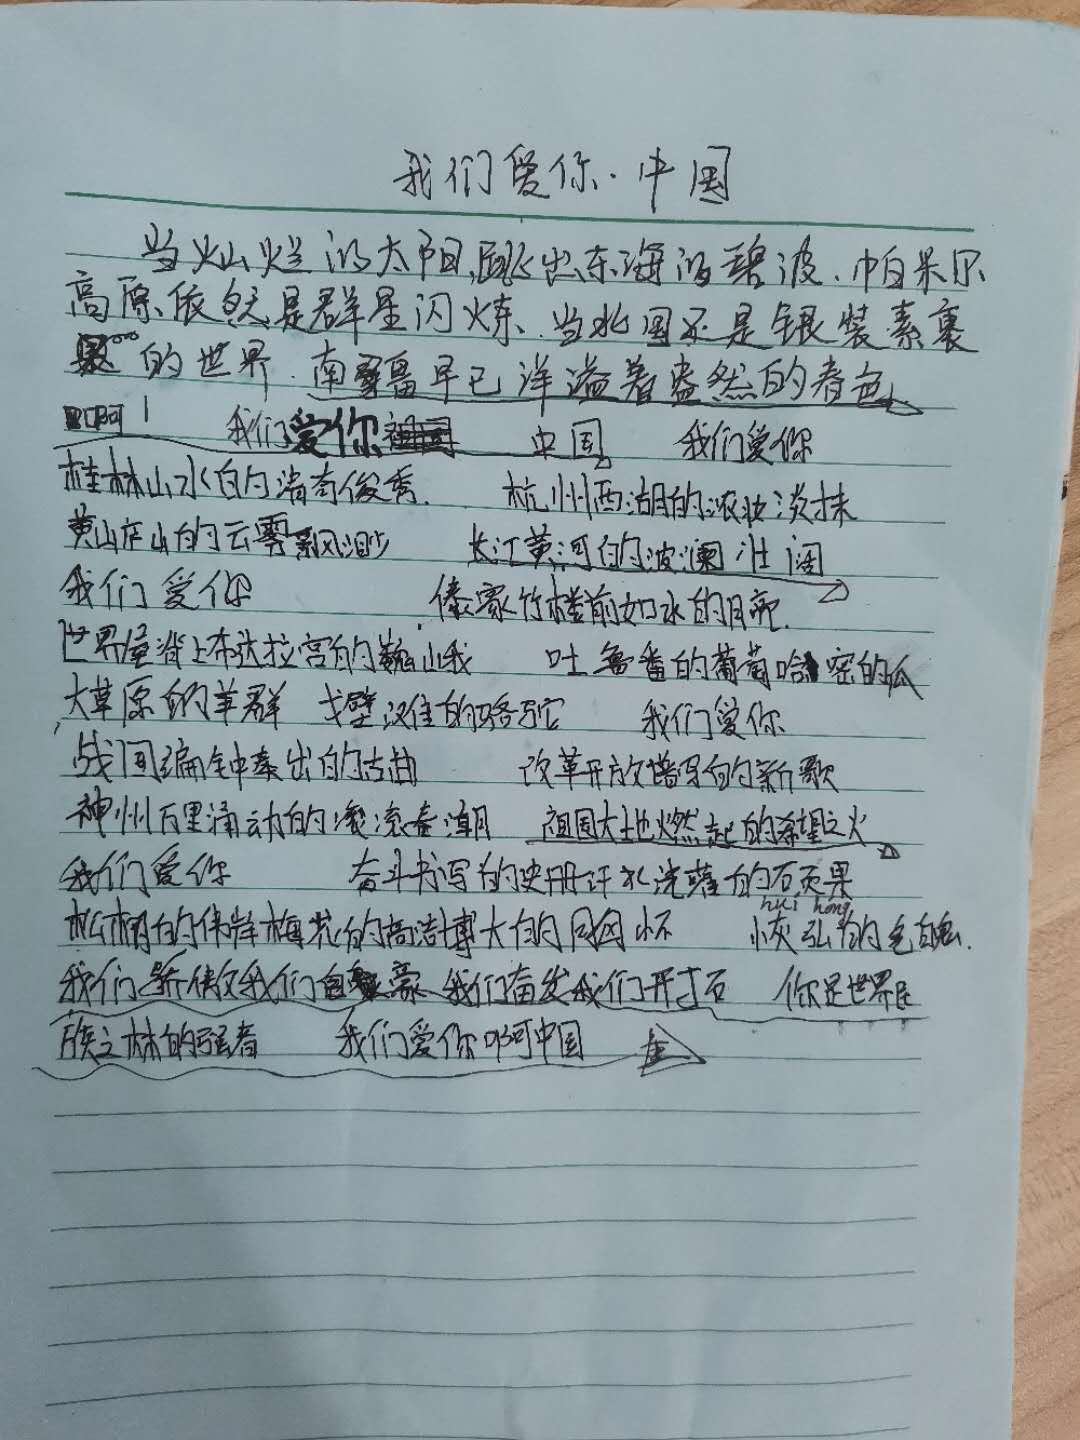 我们爱你·中国
当灿烂的太阳,跳出东海的碧波.帕米尔
高原.依然是群星闪烁.当北国还是银装素裹
的世界.南疆早已洋溢着盎然的春色
啊! 我们爱你 中国 我们爱你
桂林山水的清奇俊秀. 杭州西湖的浓妆淡抹
黄山庐山的云雾飘渺 长江黄河的波澜壮阔
我们爱你 傣家竹楼前如水的月亮.
世界屋脊上布达拉宫的巍峨 吐鲁番的葡萄哈密的瓜
大草原的羊群 戈壁滩的骆驼 我们爱你
战国编钟奏出的古曲 改革开放谱写的新歌
神州万里涌动的滚滚春潮 祖国大地燃起的希望之火
我们爱你 奋斗书写的史册汗水浇灌的硕果
松树的伟岸梅花的高洁博大的胸怀 恢弘的气魄.
hui hong
我们骄傲我们自豪 我们奋发我们开拓 你是世界民
族之林的强者 我们爱你啊中国 全